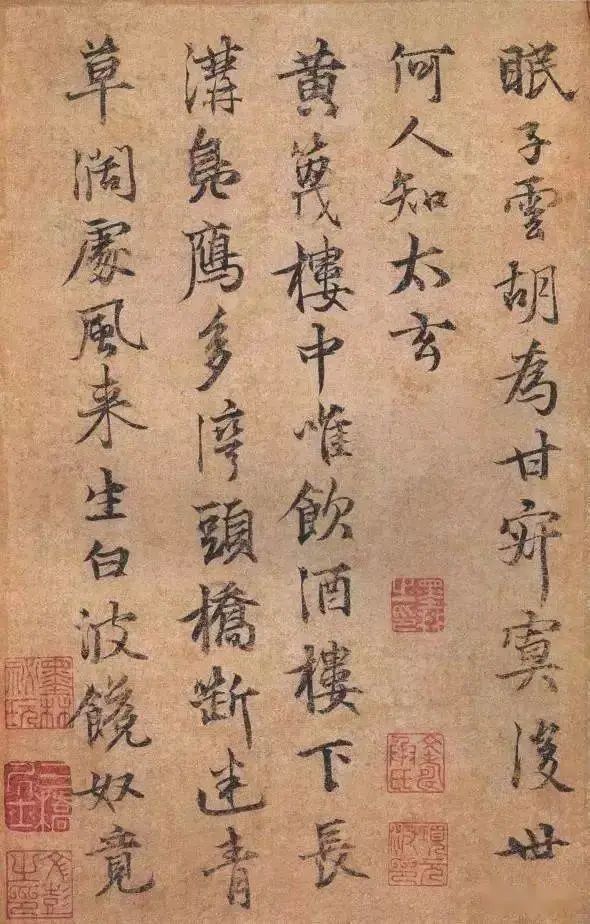 眠子雲胡為甘寂寞後世
何人知太玄
黄篾樓中唯飲酒樓下長
溝鳧鴈多湾頭橋断迷青
草闊處風来生白波饒奴竟